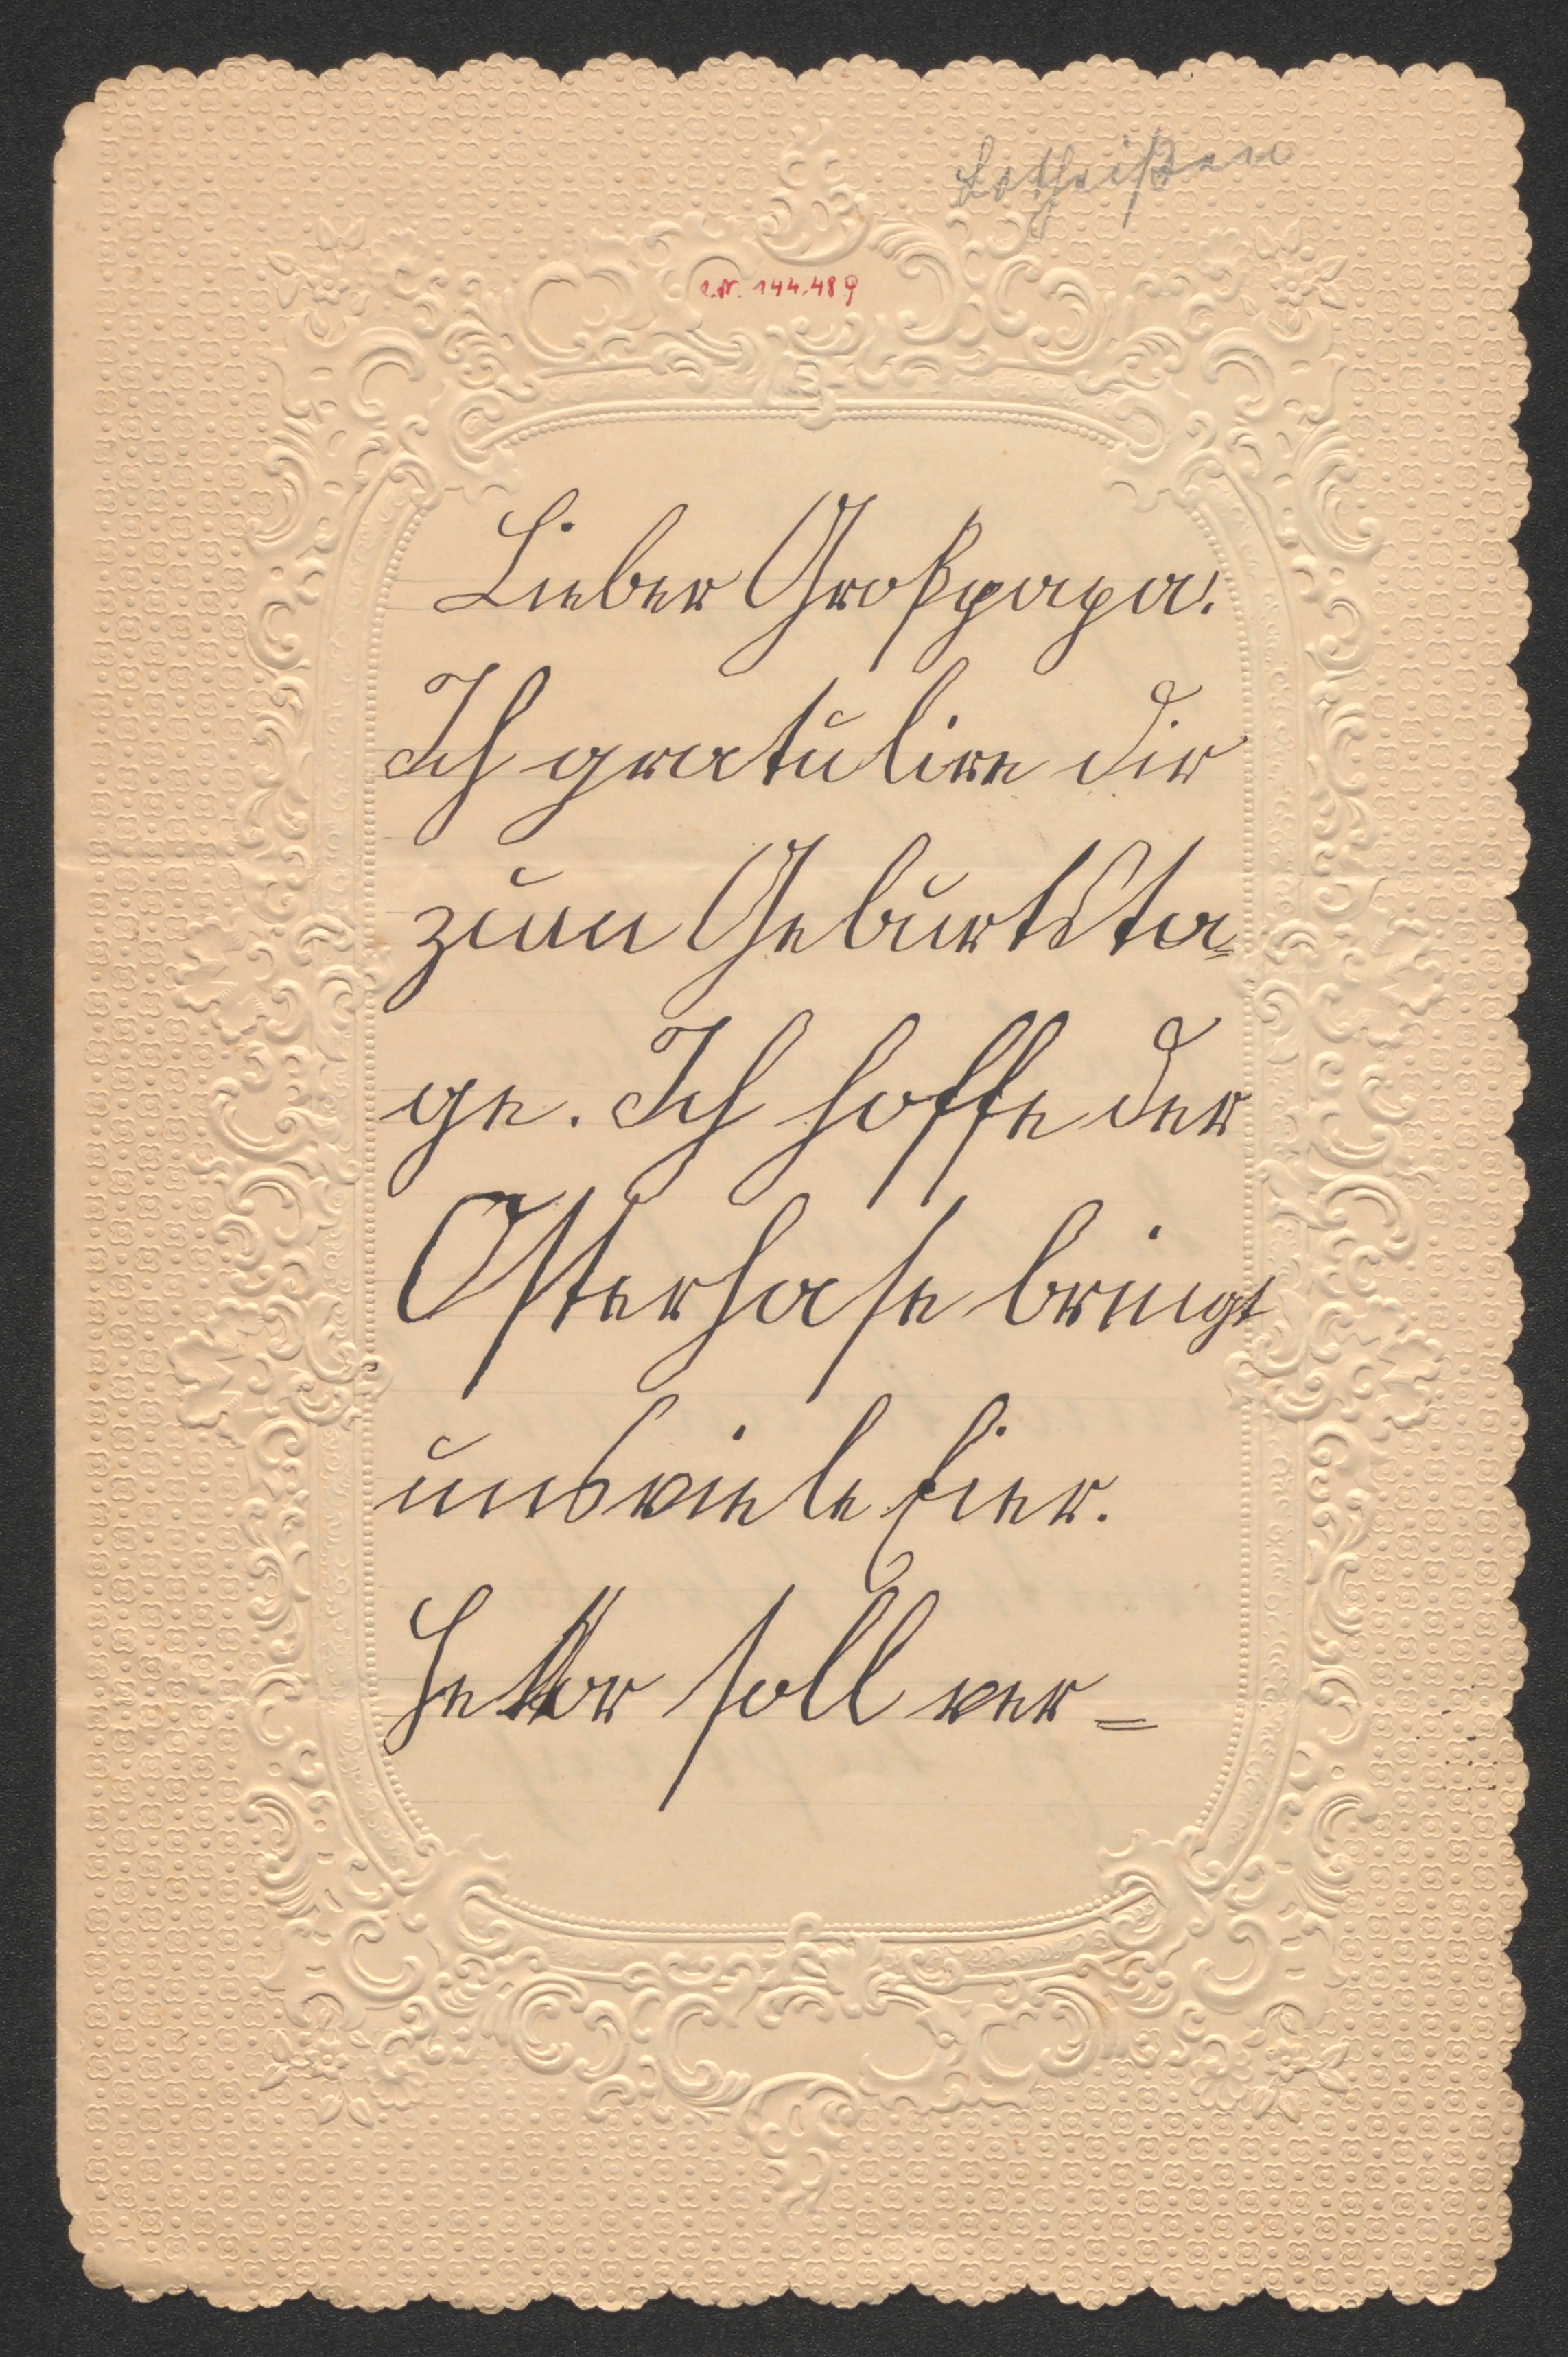 Lotheißen
I.N. 144.489
Lieber Großpapa!
Ich gratulire dir
zum Geburtsta=
ge. Ich hoffe der
Osterhase bringt
uns viele Eier.
Hektor soll ver=